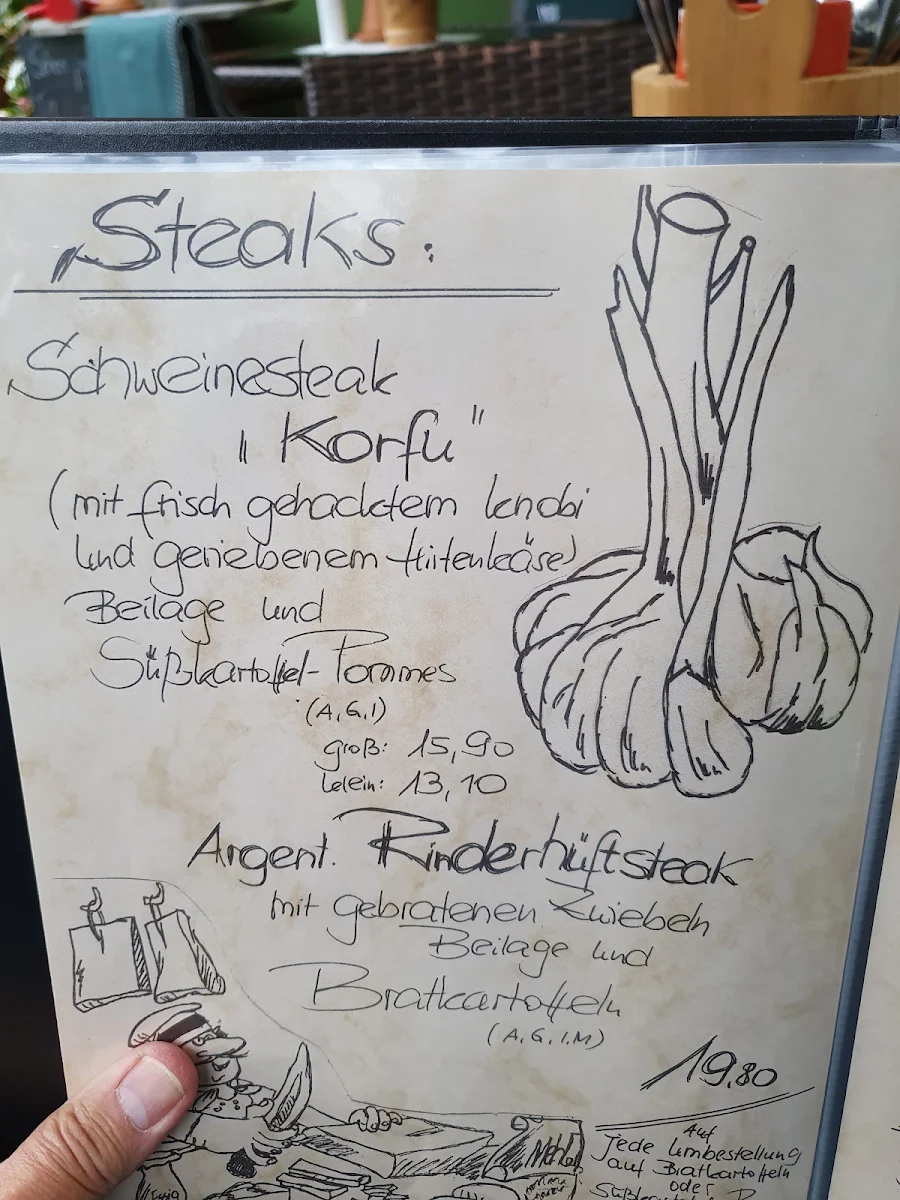 Steaks:
Schweinesteak
"Korfu"
(mit frisch gehacktem Knobi
und geriebenem Hirtenkäse)
Beilage und
Süßkartoffel-Pommes
(A,G,I)
groß: 15,90
klein: 13,10
Argent. Rinderhüftsteak
mit gebratenen Zwiebeln
Beilage und
Bratkartoffeln
(A,G,I,M)
19,80
Auf
jede Umbestellung
auf Bratkartoffeln
oder
Mehl
Essig